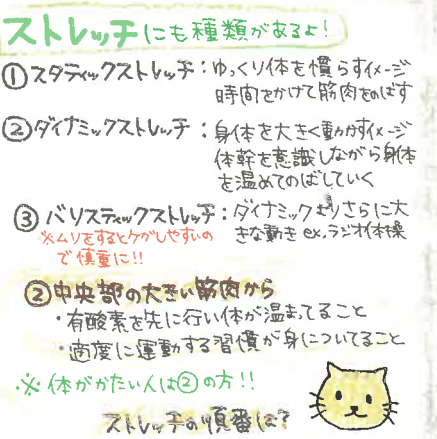 ストレッチにも種類があるよ!
①スタティックストレッチ:ゆっくり体を慣らすイメージ
時間をかけて筋肉をのばす
②ダイナミックストレッチ:身体を大きく動かすイメージ
体幹を意識しながら身体
を温めてのばしていく
③バリスティックストレッチ:ダイナミックよりさらに大
きな動き ex.ラジオ体操
※ムリをするとケガしやすいの
で慎重に!!
②中央部の大きい筋肉から
・有酸素を先に行い体が温まってること
・適度に運動する習慣が身についてること
※体がかたい人は②の方!!
ストレッチの順番は?